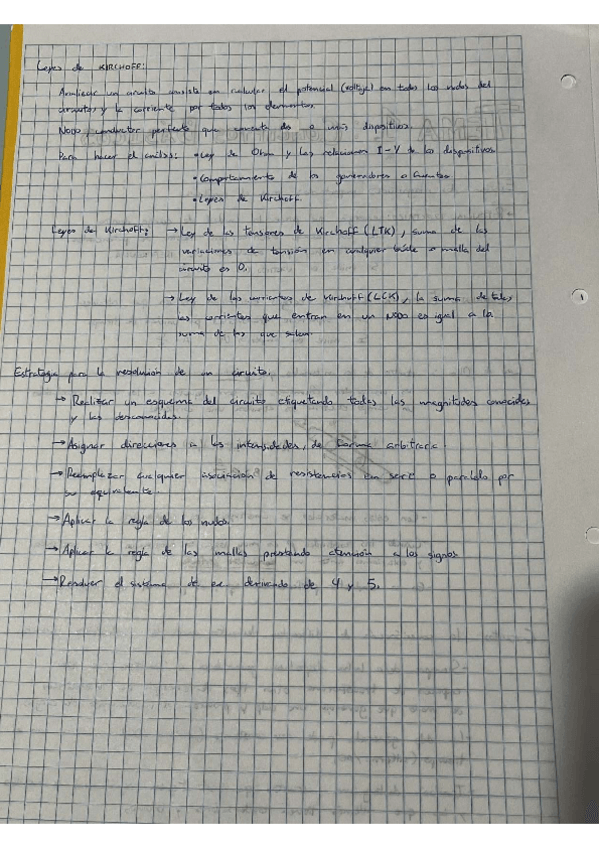 Leyes de KIRCHOFF:
Analizar un circuito consiste en calcular el potencial (voltaje) en todos los nudos del
circuitos y la corriente por todos los elementos.
Nodo, conductor perfecto que conecta dos o más dispositivos.
Para hacer el análisis: • Ley de Ohm y las relaciones I-V de los dispositivos
• Comportamiento de los generadores o fuentes
• Leyes de Kirchoff
Leyes de Kirchoff: → Ley de las tensiones de Kirchoff (LTK), suma de las
variaciones de tensión en cualquier bucle o malla del
circuito es 0.
→ Ley de las corrientes de Kirchoff (LCK), la suma de todas
las corrientes que entran en un nodo es igual a la
suma de las que salen.
Estrategia para la resolución de un circuito.
→ Realizar un esquema del circuito etiquetando todas las magnitudes conocidas
y las desconocidas.
→ Asignar direcciones a las intensidades, de forma arbitraria.
→ Reemplazar cualquier asociación de resistencias en serie o paralelo por
su equivalente.
→ Aplicar la regla de los nudos.
→ Aplicar la regla de las mallas prestando atención a los signos
→ Resolver el sistema de ec derivado de 4 y 5.